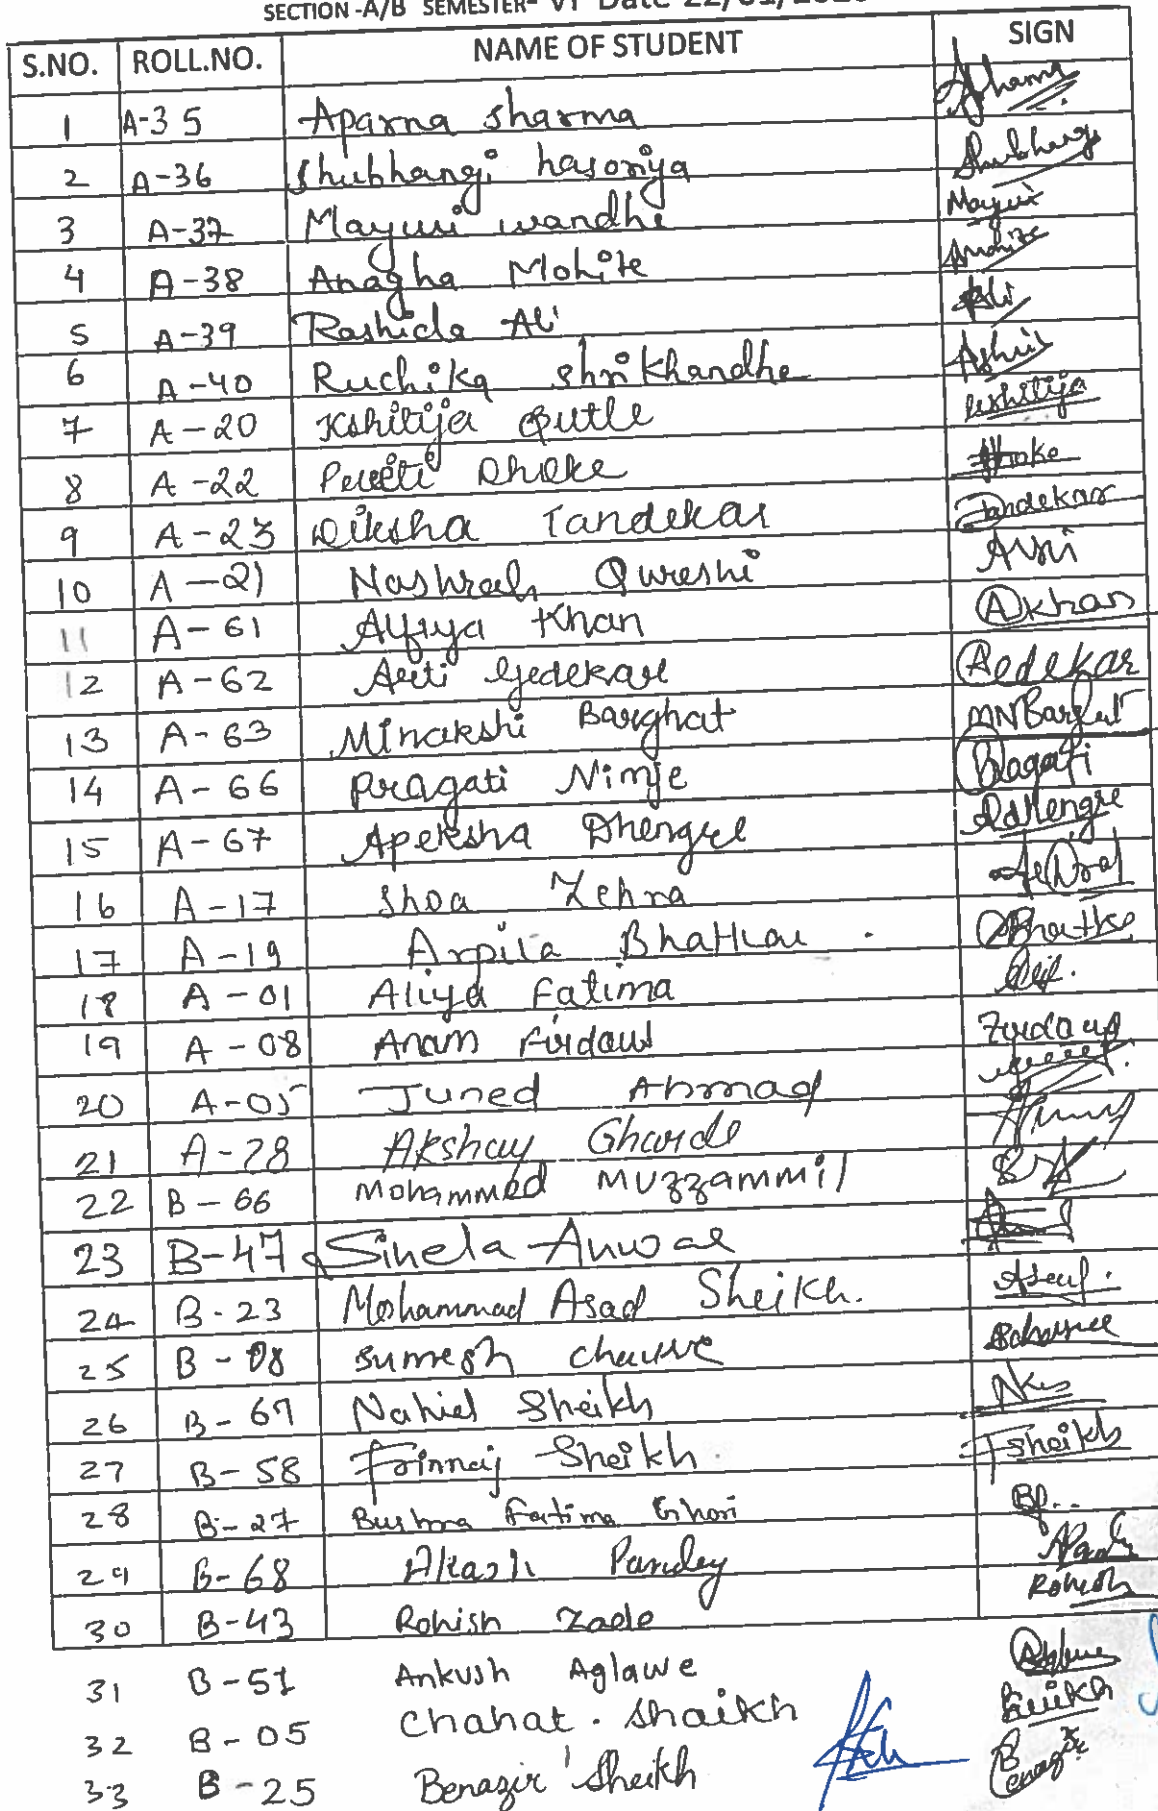 SECTION -A/B SEMESTER- VI Date 22/01/
S.NO. ROLL.NO. NAME OF STUDENT SIGN
1 A-35 Aparna Sharma Sharma
2 A-36 Shubhangi hasoriya Shubhangi
3 A-37 Mayuri wandhe Mayuri
4 A-38 Anagha Mohite
5 A-39 Rashida Ali Ali
6 A-40 Ruchika Shrikhandhe
7 A-20 Kshitija Butle Kshitija
8 A-22 Preeti Dhoke Dhoke
9 A-23 Diksha Tandekar Tandekar
10 A-21 Nashrah Qureshi
11 A-61 Alfiya Khan AKhan
12 A-62 Arti Gedekar Aedekar
13 A-63 Minakshi Barghat MNBarghat
14 A-66 Pragati Nimje Pragati
15 A-67 Apeksha Dhengre Adhengre
16 A-17 Shoa Zehra
17 A-19 Arpita Bhatkar
18 A-01 Aliya Fatima
19 A-08 Anam Firdaus Firdaus
20 A-05 Juned Ahmad
21 A-28 Akshay Gharde
22 B-66 Mohammed Muzzammil
23 B-47 Sinela Anwar
24 B-23 Mohammad Asad Sheikh.
25 B-08 Sumesh chaure
26 B-67 Nahid Sheikh
27 B-58 Frinnaj Sheikh TSheikh
28 B-27 Bushra Fatima Ghori Bf..
29 B-68 Akash Pandey
30 B-43 Rohish Zade Rohish
31 B-51 Ankush Aglawe
32 B-05 Chahat. Shaikh
33 B-25 Benazir Sheikh Benazir